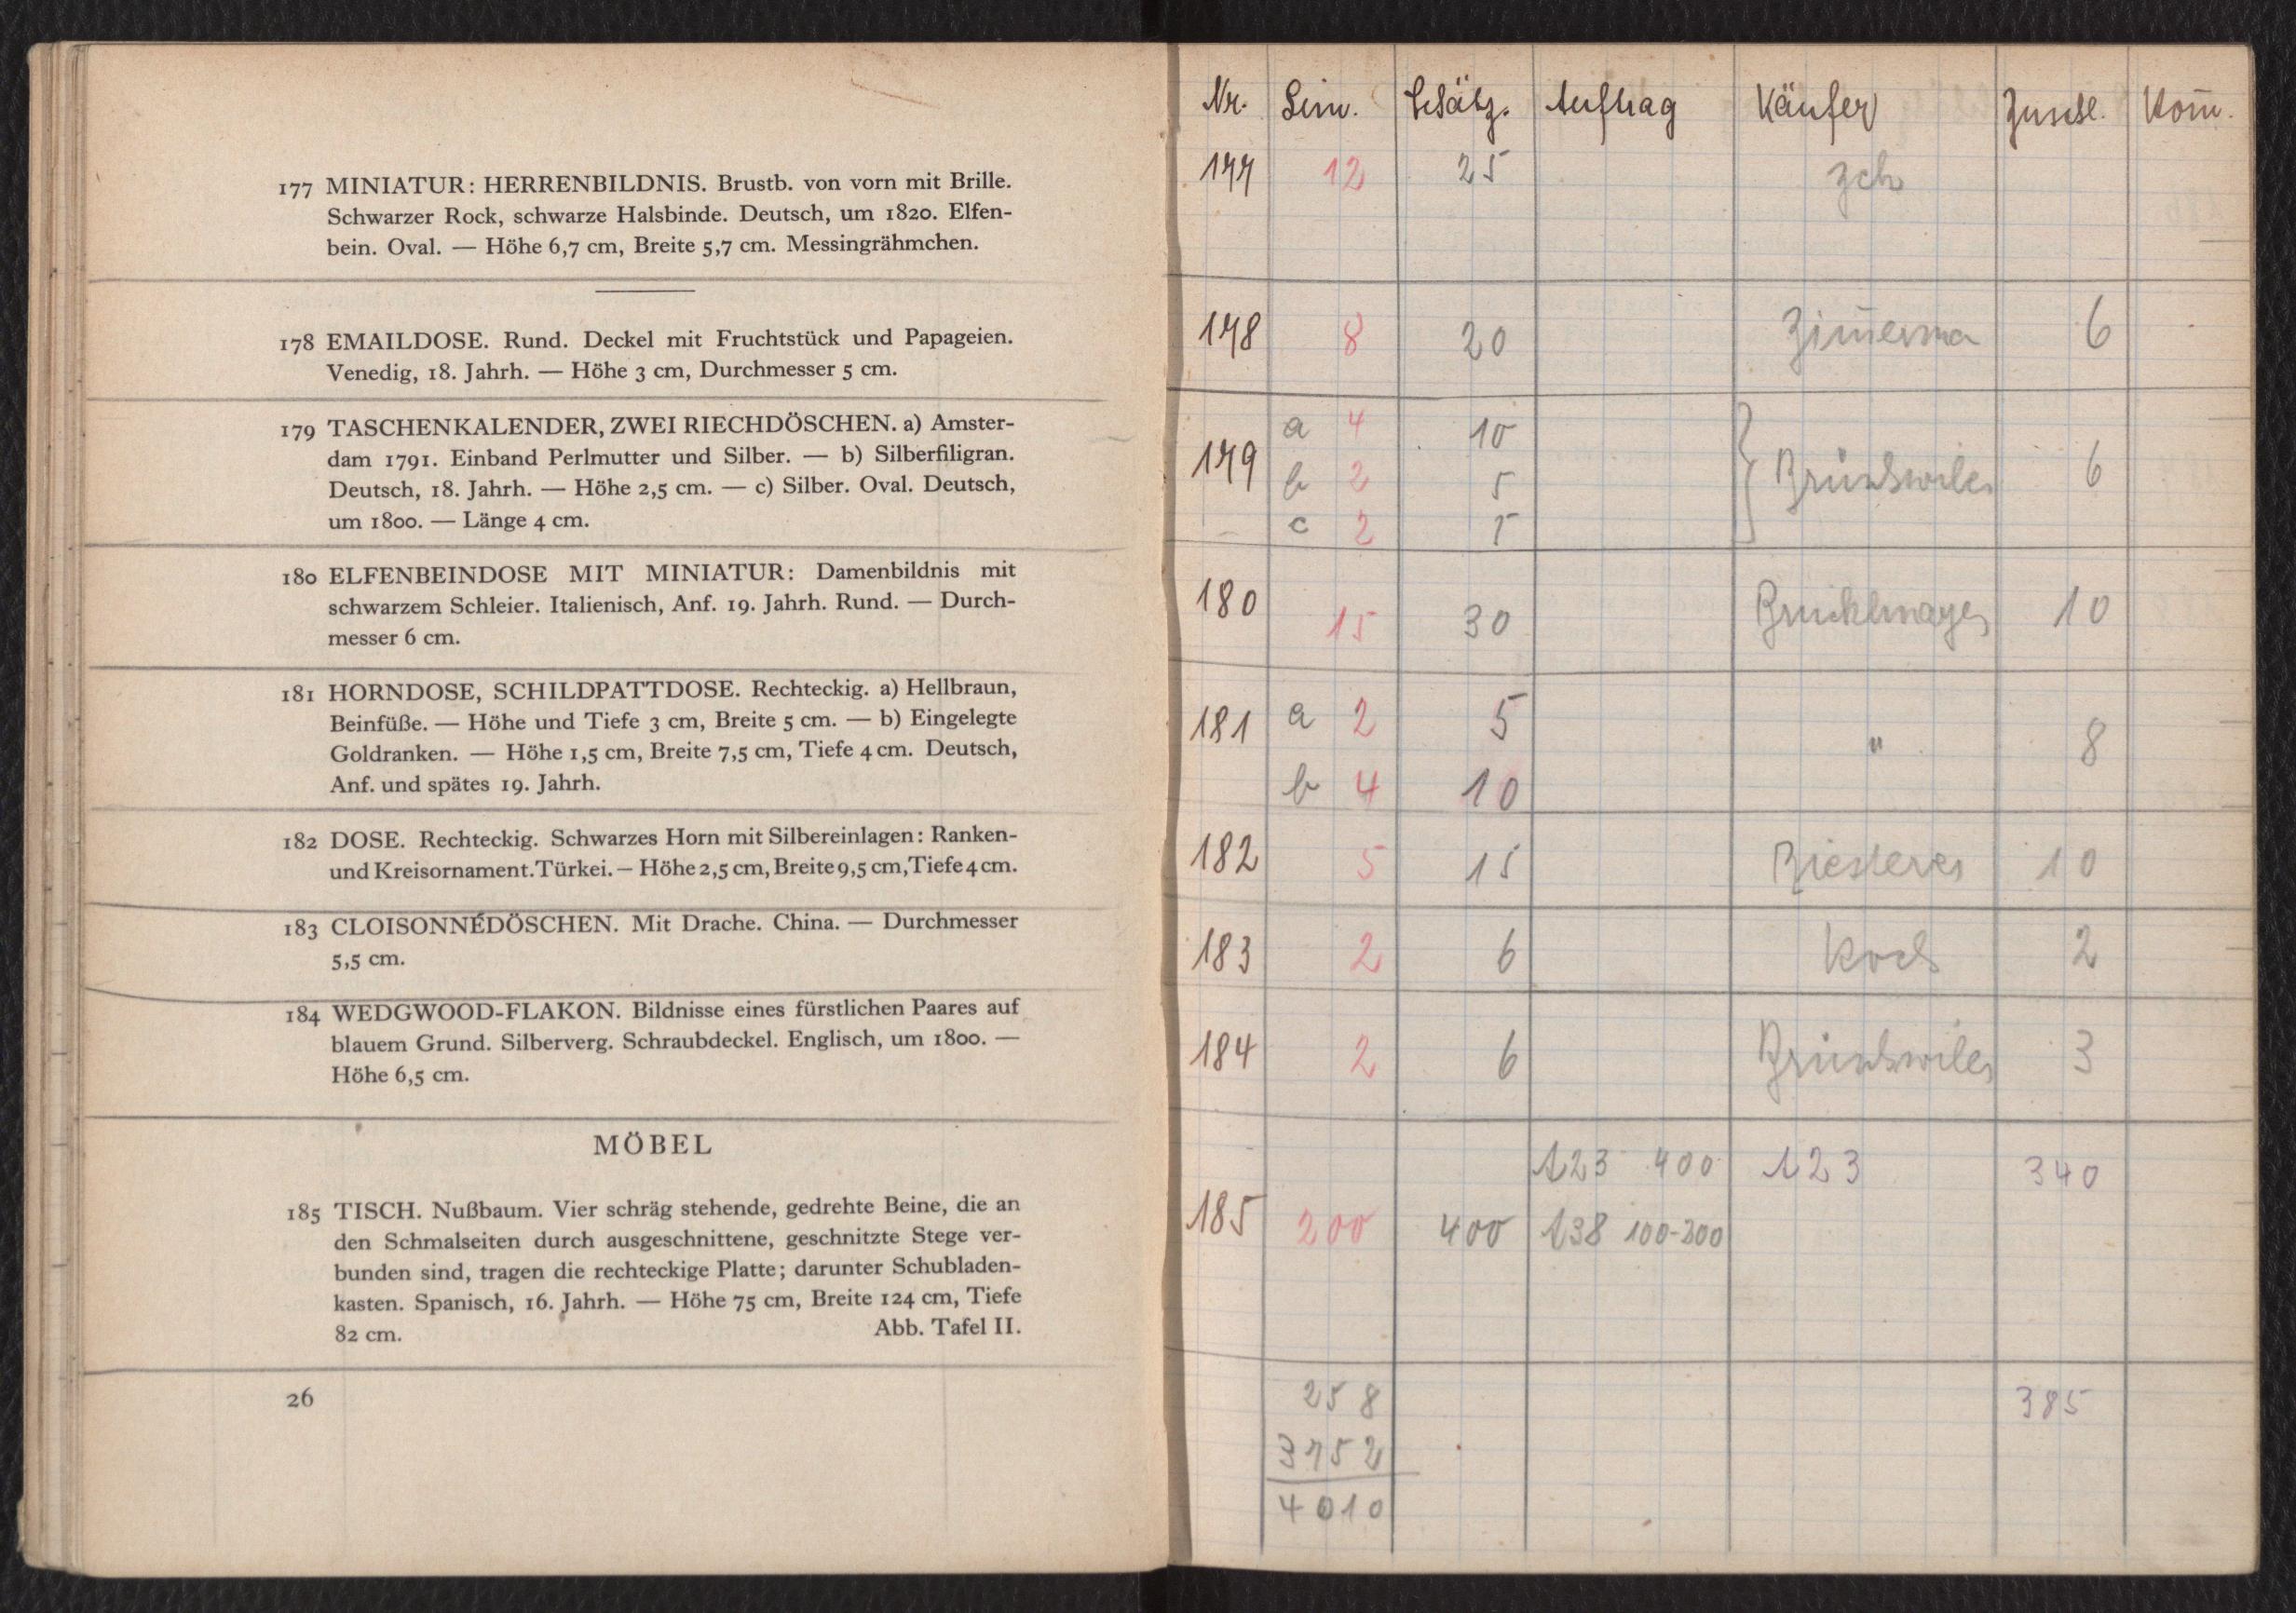 177 MINIATUR: HERRENBILDNIS. Brustb. von vorn mit Brille.
Schwarzer Rock, schwarze Halsbinde. Deutsch, um 1820. Elfen-
bein. Oval. — Höhe 6,7 cm, Breite 5,7 cm. Messingrähmchen.
178 EMAILDOSE. Rund. Deckel mit Fruchtstück und Papageien.
Venedig, 18. Jahrh. — Höhe 3 cm, Durchmesser 5 cm.
179 TASCHENKALENDER, ZWEI RIECHDÖSCHEN. a) Amster-
dam 1791. Einband Perlmutter und Silber. — b) Silberfiligran.
Deutsch, 18. Jahrh. — Höhe 2,5 cm. — c) Silber. Oval. Deutsch,
um 1800. — Länge 4 cm.
180 ELFENBEINDOSE MIT MINIATUR: Damenbildnis mit
schwarzem Schleier. Italienisch, Anf. 19. Jahrh. Rund. — Durch-
messer 6 cm.
181 HORNDOSE, SCHILDPATTDOSE. Rechteckig. a) Hellbraun,
Beinfüße. — Höhe und Tiefe 3 cm, Breite 5 cm. — b) Eingelegte
Goldranken. — Höhe 1,5 cm, Breite 7,5 cm, Tiefe 4 cm. Deutsch,
Anf. und spätes 19. Jahrh.
182 DOSE. Rechteckig. Schwarzes Horn mit Silbereinlagen: Ranken-
und Kreisornament. Türkei. — Höhe 2,5 cm, Breite 9,5 cm, Tiefe 4 cm.
183 CLOISONNÉDÖSCHEN. Mit Drache. China. — Durchmesser
5,5 cm.
184 WEDGWOOD-FLAKON. Bildnisse eines fürstlichen Paares auf
blauem Grund. Silberverg. Schraubdeckel. Englisch, um 1800. —
Höhe 6,5 cm.
MÖBEL
185 TISCH. Nußbaum. Vier schräg stehende, gedrehte Beine, die an
den Schmalseiten durch ausgeschnittene, geschnitzte Stege ver-
bunden sind, tragen die rechteckige Platte; darunter Schubladen-
kasten. Spanisch, 16. Jahrh. — Höhe 75 cm, Breite 124 cm, Tiefe
82 cm. Abb. Tafel II.
26
Nr. Lim. Schätz. Auftrag Käufer Zuschl. Kom̄.
177 12 25 zch
178 8 20 Zim̄erma 6
a 4 10
179 b 2 5 6
c 2 5
180 15 30 10
181 a 2 5 " 8
b 4 10
182 5 15 Biesterer 10
183 2 6 Koch 2
184 2 6 3
A23 400 A23 340
185 200 400 A38 100-300
258 385
3752
4010